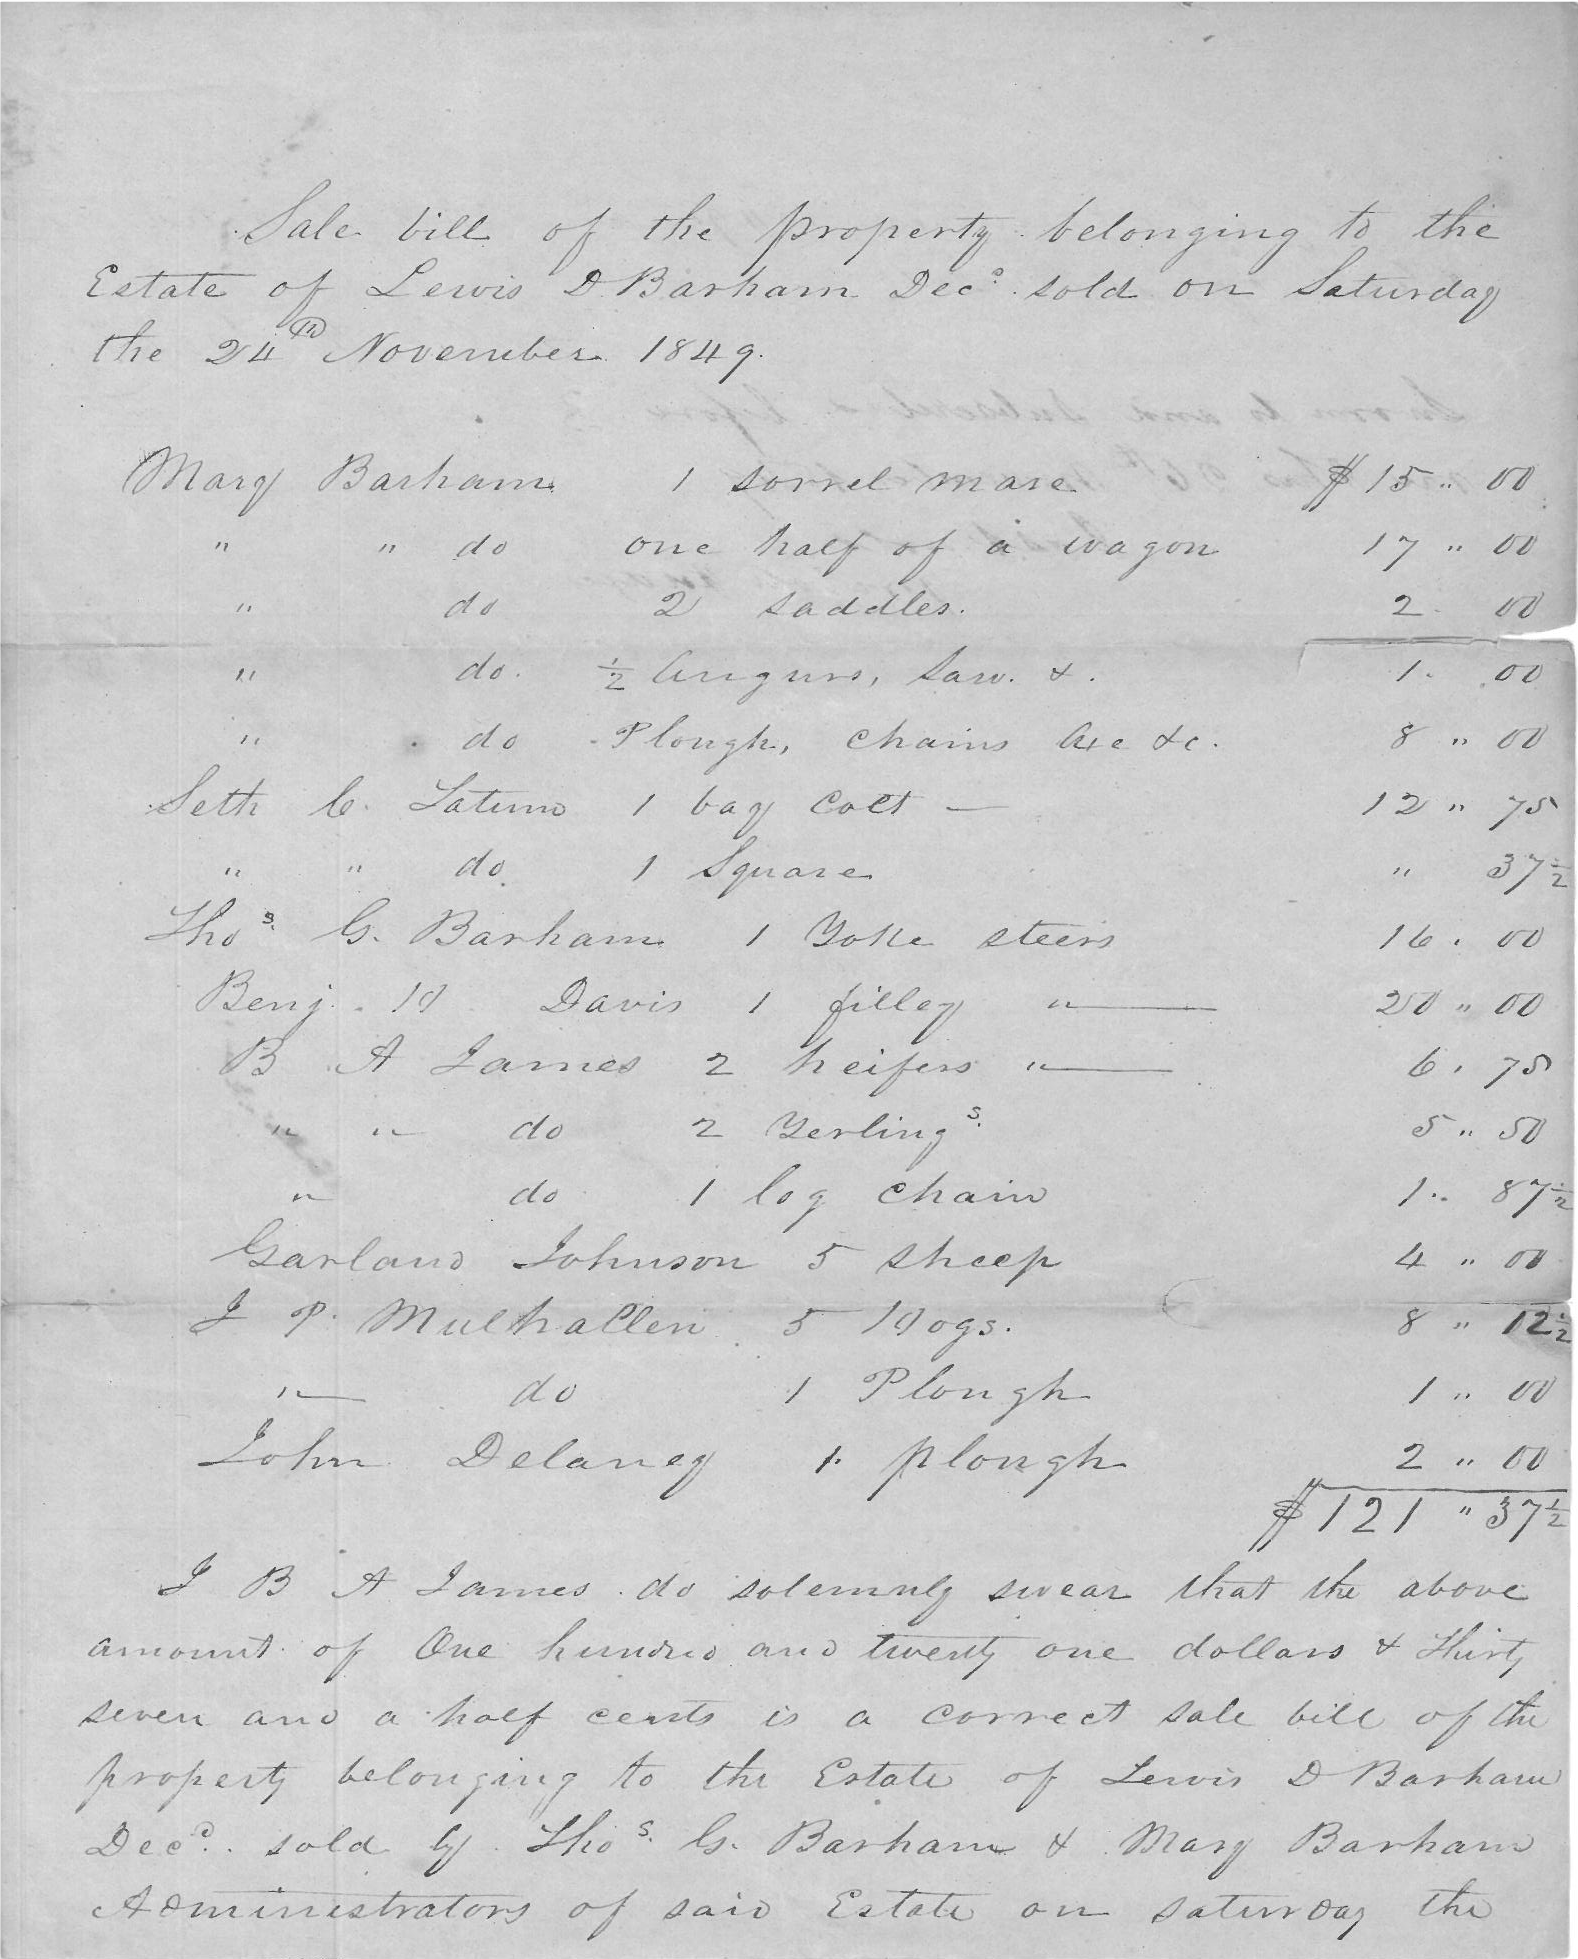 Sale bill of the property belonging to the
Estate of Lewis D Barham Decd. sold on Saturday
the 24th November 1849.
Mary Barham 1 sorrel mare $15 " 00
" " do one half of a wagon 17 " 00
" do 2 saddles. 2. 00
" do. ½ Augurs, Saw. &. 1. 00
" do Plough, chains Axe &c. 8 " 00
Seth C. Latum 1 bay Colt — 12 " 75
" " do 1 Square " 37½
Thos. G. Barham 1 Yoke steers 16. 00
Benj. H Davis 1 filley " — 20 " 00
B A James 2 heifers " — 6. 75
" " do 2 Yerlings. 5 " 50
" do 1 log chain 1.. 87½
Garland Johnson 5 sheep 4 " 00
J P. Mulhallen 5 Hogs. 8 " 12½
" do 1 Plough 1 " 00
John Delaney 1. plough 2 " 00
$121 " 37½
I B A James do solemnly swear that the above
amount of One hundred and twenty one dollars & Thirty
seven and a half cents is a correct sale bill of the
property belonging to the Estate of Lewis D Barham
Decd. sold by Thos. G. Barham & Mary Barham
Administrators of said Estate on saturday the